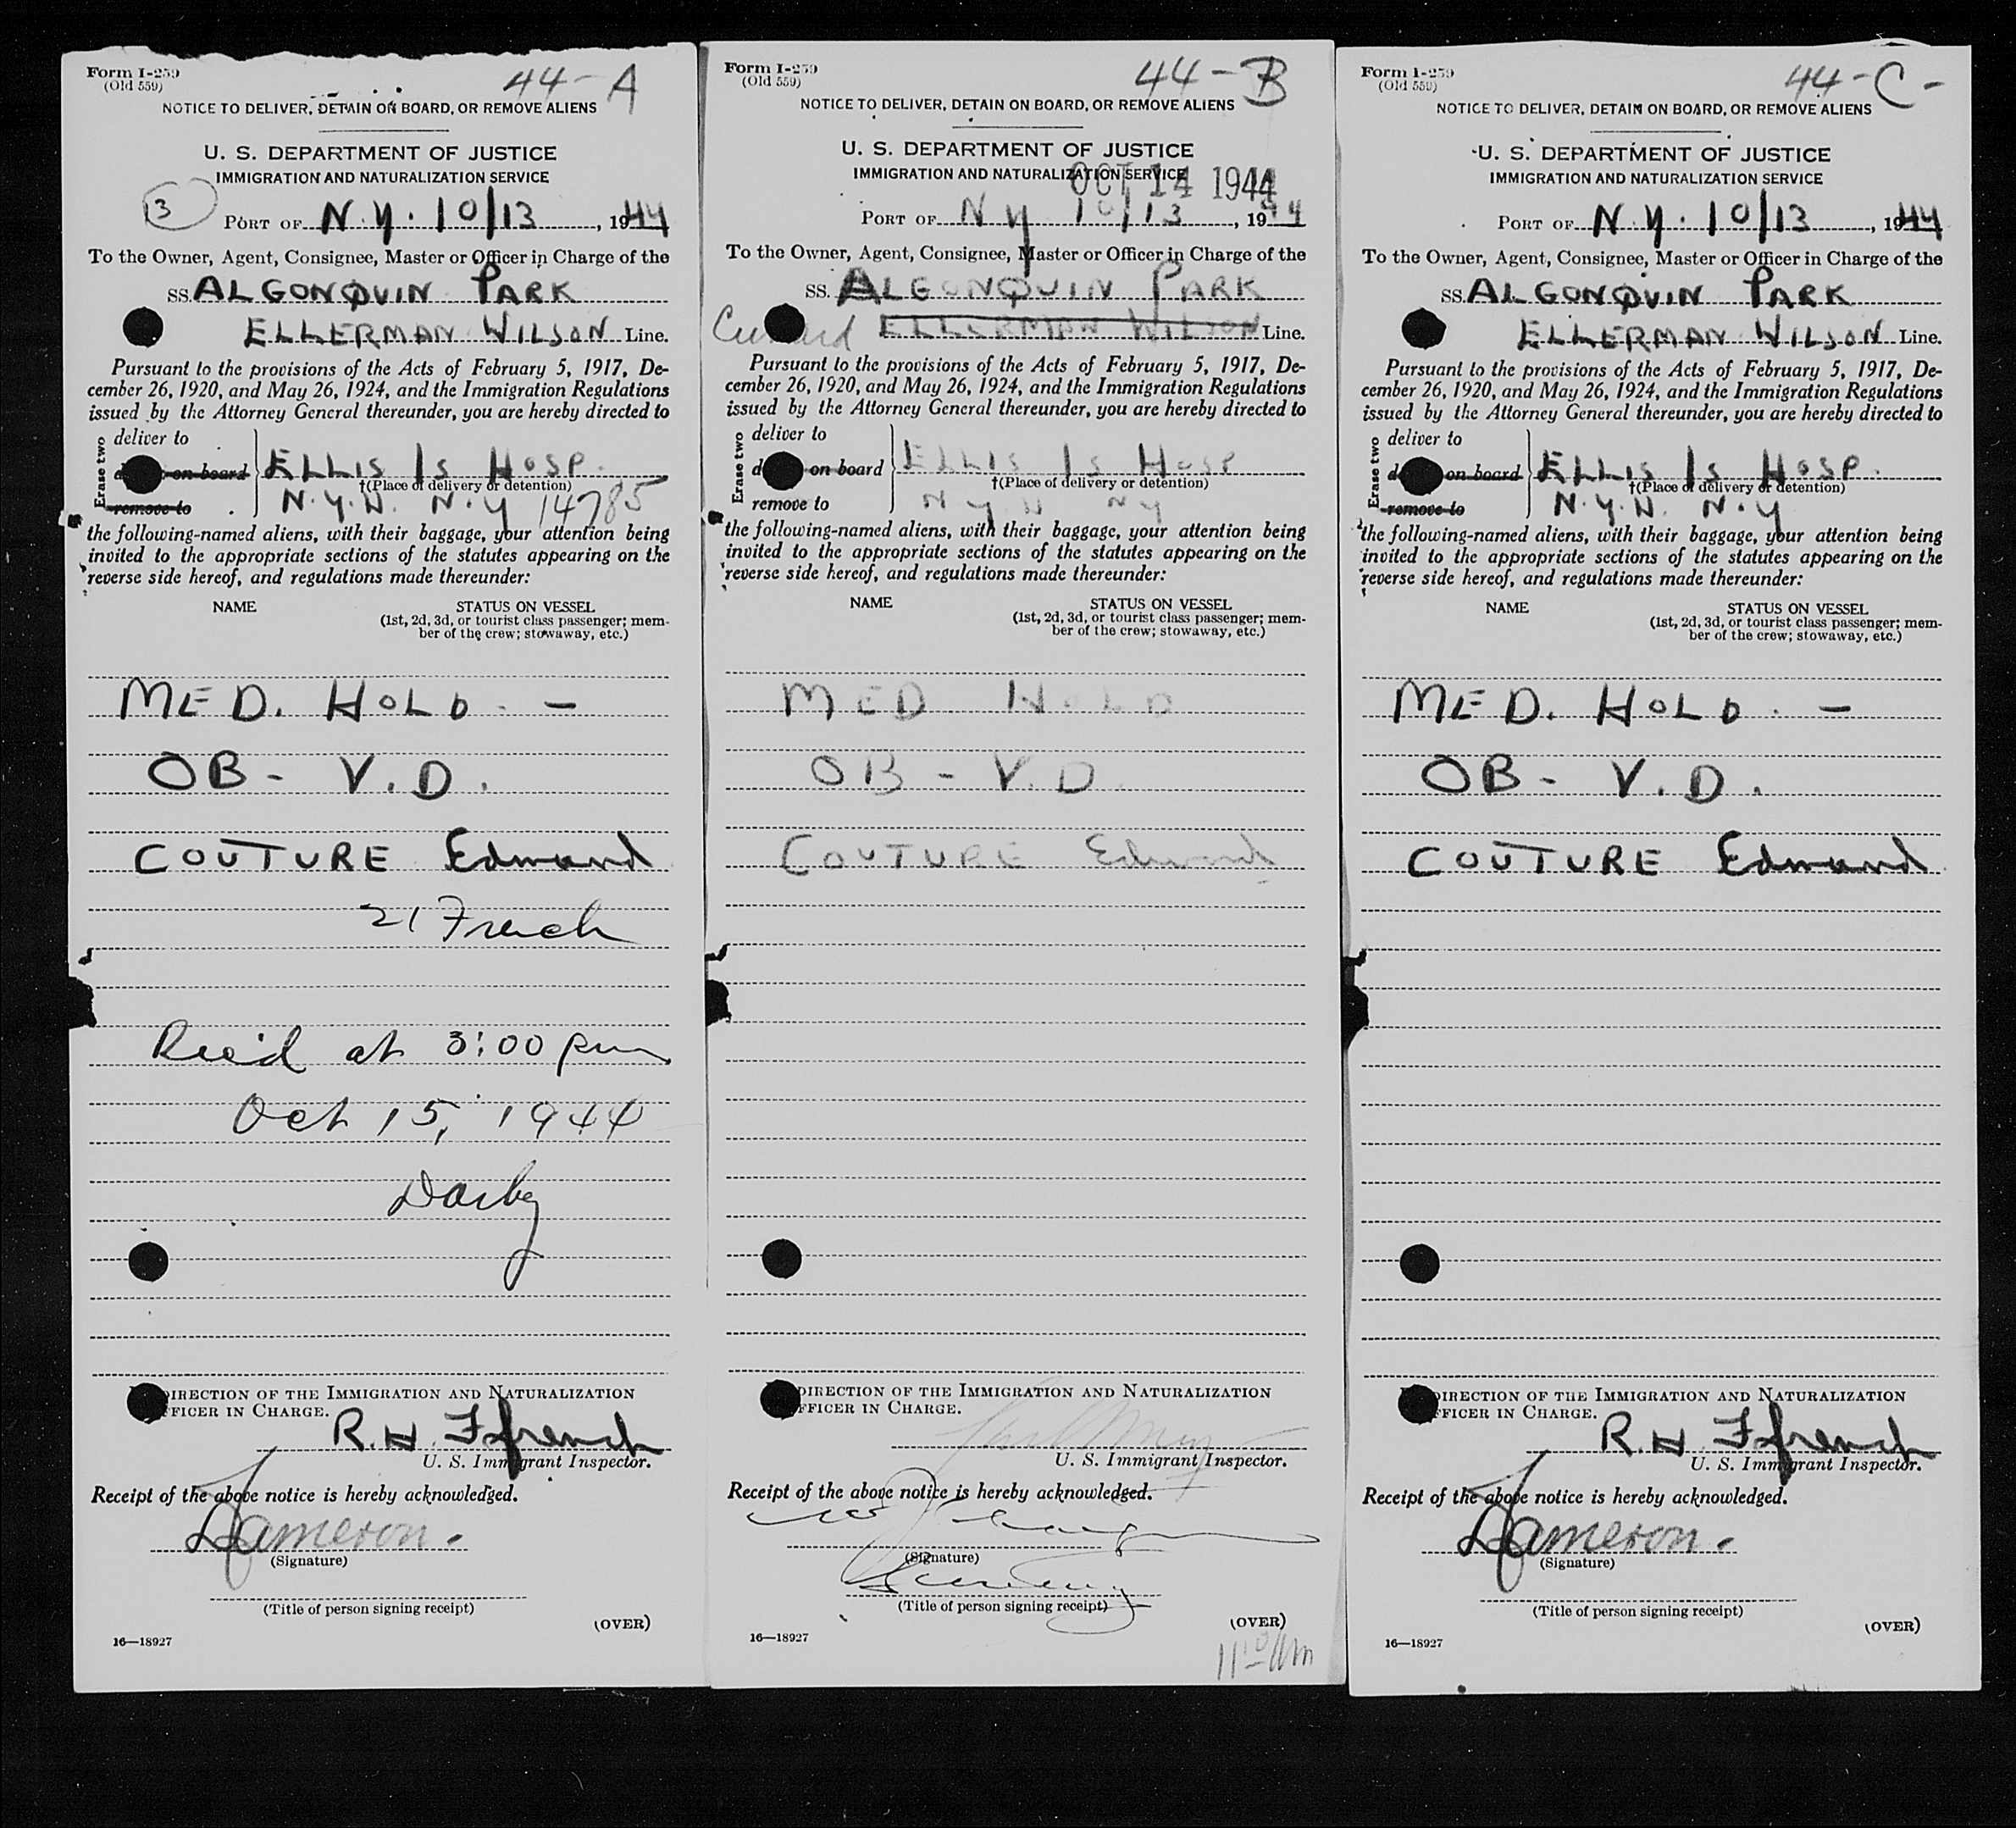 Form I-259
(Old 559)
44-A
NOTICE TO DELIVER, DETAIN ON BOARD, OR REMOVE ALIENS
U. S. DEPARTMENT OF JUSTICE
IMMIGRATION AND NATURALIZATION SERVICE
3
PORT OF N.Y. 10/13, 1944
To the Owner, Agent, Consignee, Master or Officer in Charge of the
SS. ALGONQUIN PARK
ELLERMAN WILSON Line.
Pursuant to the provisions of the Acts of February 5, 1917, De-
cember 26, 1920, and May 26, 1924, and the Immigration Regulations
issued by the Attorney General thereunder, you are hereby directed to
Erase two
deliver to
d on board ELLIS IS HOSP.
†(Place of delivery or detention)
remove to N.Y.H. N.Y 14785
the following-named aliens, with their baggage, your attention being
invited to the appropriate sections of the statutes appearing on the
reverse side hereof, and regulations made thereunder:
NAME STATUS ON VESSEL
(1st, 2d, 3d, or tourist class passenger; mem-
ber of the crew; stowaway, etc.)
MED. HOLD. -
OB - V.D.
COUTURE Edmund
21 French
Rec'd at 3:00 pm
Oct 15, 1944
Darby
DIRECTION OF THE IMMIGRATION AND NATURALIZATION
FFICER IN CHARGE.
R.H. Ffrench
U. S. Immigrant Inspector.
Receipt of the above notice is hereby acknowledged.
Dameron.
(Signature)
(Title of person signing receipt)
(OVER)
16—18927
Form I-259
(Old 559)
44-B
NOTICE TO DELIVER, DETAIN ON BOARD, OR REMOVE ALIENS
U. S. DEPARTMENT OF JUSTICE
IMMIGRATION AND NATURALIZATION SERVICE
OCT 14 1944
PORT OF N Y 10/13, 1944
To the Owner, Agent, Consignee, Master or Officer in Charge of the
SS. ALGONQUIN PARK
Cunard ELLERMAN WILSON Line.
Pursuant to the provisions of the Acts of February 5, 1917, De-
cember 26, 1920, and May 26, 1924, and the Immigration Regulations
issued by the Attorney General thereunder, you are hereby directed to
Erase two
deliver to
d on board ELLIS IS HOSP
†(Place of delivery or detention)
remove to N Y H N Y
the following-named aliens, with their baggage, your attention being
invited to the appropriate sections of the statutes appearing on the
reverse side hereof, and regulations made thereunder:
NAME STATUS ON VESSEL
(1st, 2d, 3d, or tourist class passenger; mem-
ber of the crew; stowaway, etc.)
MED HOLD
OB - V.D.
COUTURE Edmund
DIRECTION OF THE IMMIGRATION AND NATURALIZATION
FFICER IN CHARGE.
U. S. Immigrant Inspector.
Receipt of the above notice is hereby acknowledged.
(Signature)
(Title of person signing receipt)
(OVER)
16—18927
11 10 AM
Form I-259
(Old 559)
44-C-
NOTICE TO DELIVER, DETAIN ON BOARD, OR REMOVE ALIENS
U. S. DEPARTMENT OF JUSTICE
IMMIGRATION AND NATURALIZATION SERVICE
PORT OF N.Y. 10/13, 1944
To the Owner, Agent, Consignee, Master or Officer in Charge of the
SS. ALGONQUIN PARK
ELLERMAN WILSON Line.
Pursuant to the provisions of the Acts of February 5, 1917, De-
cember 26, 1920, and May 26, 1924, and the Immigration Regulations
issued by the Attorney General thereunder, you are hereby directed to
Erase two
deliver to
d on board ELLIS IS HOSP.
†(Place of delivery or detention)
remove to N.Y.H. N.Y
the following-named aliens, with their baggage, your attention being
invited to the appropriate sections of the statutes appearing on the
reverse side hereof, and regulations made thereunder:
NAME STATUS ON VESSEL
(1st, 2d, 3d, or tourist class passenger; mem-
ber of the crew; stowaway, etc.)
MED. HOLD. -
OB - V.D.
COUTURE Edmund
DIRECTION OF THE IMMIGRATION AND NATURALIZATION
FFICER IN CHARGE.
R.H. Ffrench
U. S. Immigrant Inspector.
Receipt of the above notice is hereby acknowledged.
Dameron.
(Signature)
(Title of person signing receipt)
(OVER)
16—18927